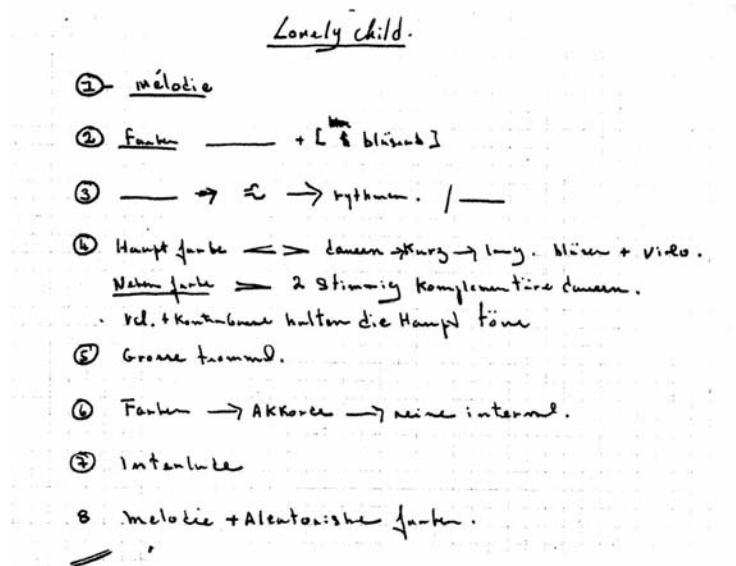 Lonely child.
① - mélodie
② Farben —— + [ bläsend ]
③ —— → → rythmen. / ——
④ Haupt farbe < > dauern → Kurz → lang. bläser + violo.
Neben farbe > 2 Stimmig Komplementäre dauern.
vcl. + Kontrabasse halten die Haupt töne
⑤ Grosse trommel.
⑥ Farben → AKKorde → reine interval.
⑦ Interlude
8 melodie + Aleatorishe farben.